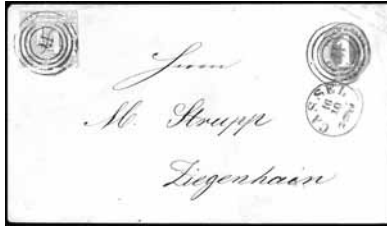 Herrn
M. Strupp
Ziegenhain
CASSEL